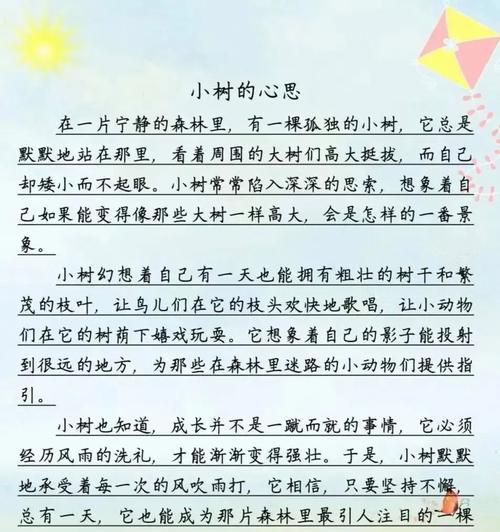 小树的心思
在一片宁静的森林里，有一棵孤独的小树，它总是
默默地站在那里，看着周围的大树们高大挺拔，而自己
却矮小而不起眼。小树常常陷入深深的思索，想象着自
己如果能变得像那些大树一样高大，会是怎样的一番景
象。
小树幻想着自己有一天也能拥有粗壮的树干和繁
茂的枝叶，让鸟儿们在它的枝头欢快地歌唱，让小动物
们在它的树荫下嬉戏玩耍。它想象着自己的影子能投射
到很远的地方，为那些在森林里迷路的小动物们提供指
引。
小树也知道，成长并不是一蹴而就的事情，它必须
经历风雨的洗礼，才能渐渐变得强壮。于是，小树默默
地承受着每一次的风吹雨打，它相信，只要坚持不懈，
总有一天，它也能成为那片森林里最引人注目的一棵